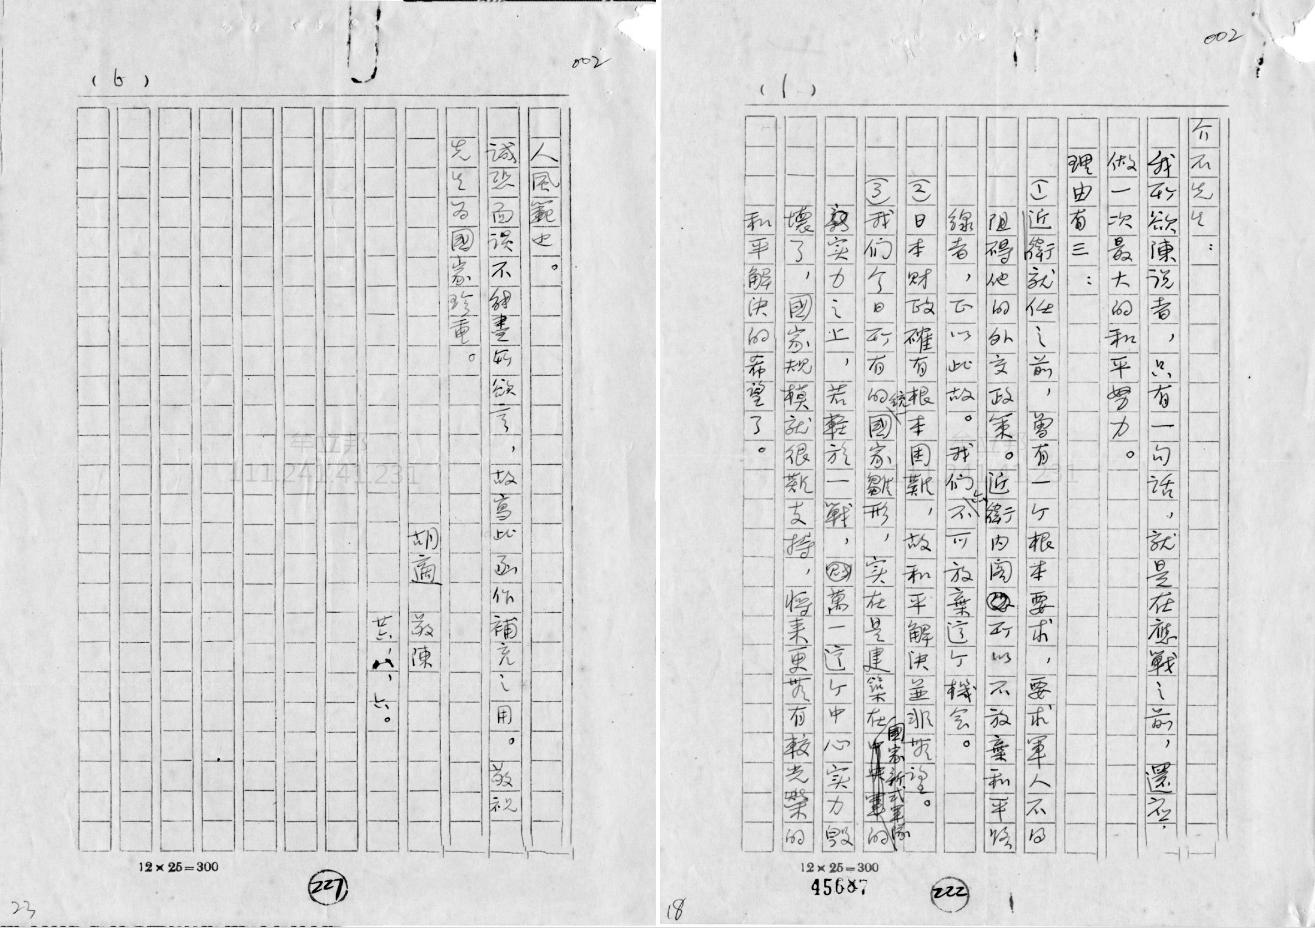 002
(1)
介石先生：
我所欲陳说者，只有一句話，就是在應戰之前，還应
做一次最大的和平努力。
理由有三：
①近衛就任之前，曾有一个根本要求，要求軍人不得
阻碍他的外交政策。近衛内阁所以不放棄和平路
線者，正以此故。我们亦不可放棄这个機会。
②日本財政確有根本困難，故和平解決並非無望。
③我们今日所有的統一國家雛形，实在是建築在國家新式軍隊的
实力之上，若輕於一戰，萬一这个中心实力毁
壞了，國家規模就很難支持，將来更無有較光榮的
和平解決的希望了。
12×25=300
45687
222
18
002
(6)
人風範也。
誠恐面談不能盡所欲言，故寫此函作補充之用。敬祝
先生為國家珍重。
胡適 敬陳
廿六，八，六。
12×25=300
227
23